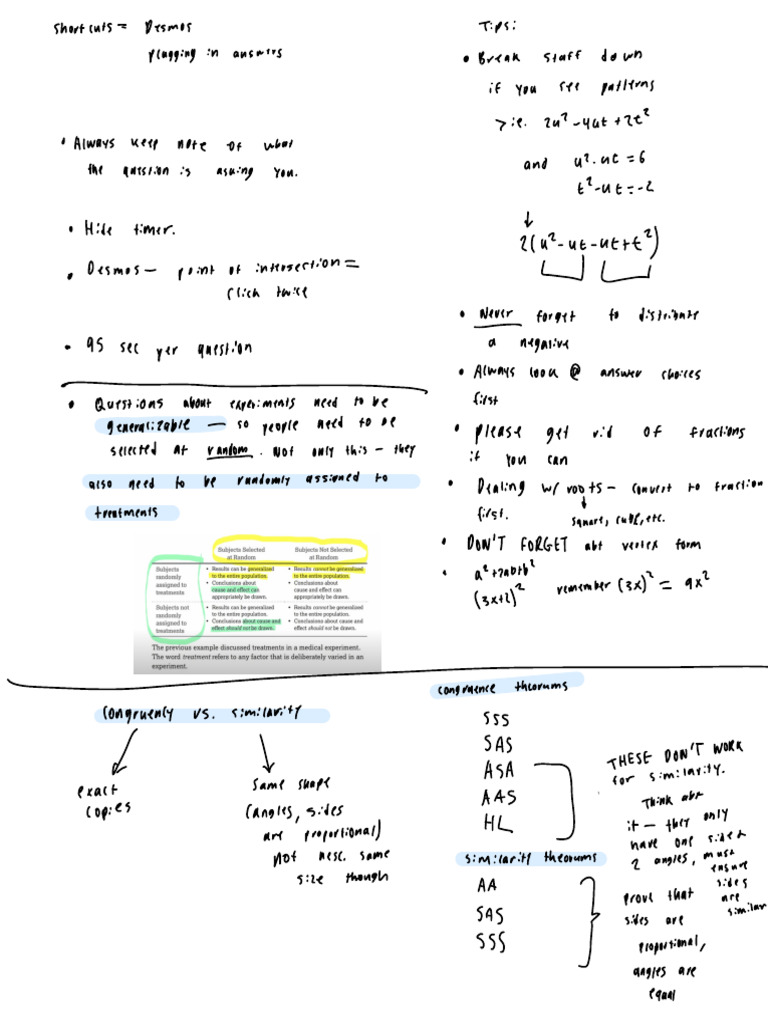 Shortcuts = Desmos
plugging in answers
• Always keep note of what
the question is asking you.
• Hide timer.
• Desmos — point of intersection =
click twice
• 95 sec per question
Tips:
• Break stuff down
if you see patterns
> i.e. 2u² - 4ut + 2t²
and u² - ut = 6
t² - ut = -2
↓
2(u² - ut - ut + t²)
• Never forget to distribute
a negative
• Always look @ answer choices
first
• please get rid of fractions
if you can
• Dealing w/ roots — convert to fraction
first. square, cube, etc.
• DON'T FORGET abt vertex form
• a² + 2ab + b²
(3x+2)² remember (3x)² = 9x²
• Questions about experiments need to be
generalizable — so people need to be
selected at random. Not only this — they
also need to be randomly assigned to
treatments
Subjects Selected at Random
Subjects Not Selected at Random
Subjects randomly assigned to treatments
• Results can be generalized to the entire population.
• Conclusions about cause and effect can appropriately be drawn.
• Results cannot be generalized to the entire population.
• Conclusions about cause and effect can appropriately be drawn.
Subjects not randomly assigned to treatments
• Results can be generalized to the entire population.
• Conclusions about cause and effect should not be drawn.
• Results cannot be generalized to the entire population.
• Conclusions about cause and effect should not be drawn.
The previous example discussed treatments in a medical experiment.
The word treatment refers to any factor that is deliberately varied in an
experiment.
Congruency vs. similarity
exact
copies
same shape
(angles, sides
are proportional)
not nesc. same
size though
congruence theorums
SSS
SAS
ASA
AAS
HL
THESE DON'T WORK
for similarity.
Think abt
it — they only
have one side &
2 angles, must
ensure
sides
are
similar
similarity theorums
AA
SAS
SSS
prove that
sides are
proportional,
angles are
equal